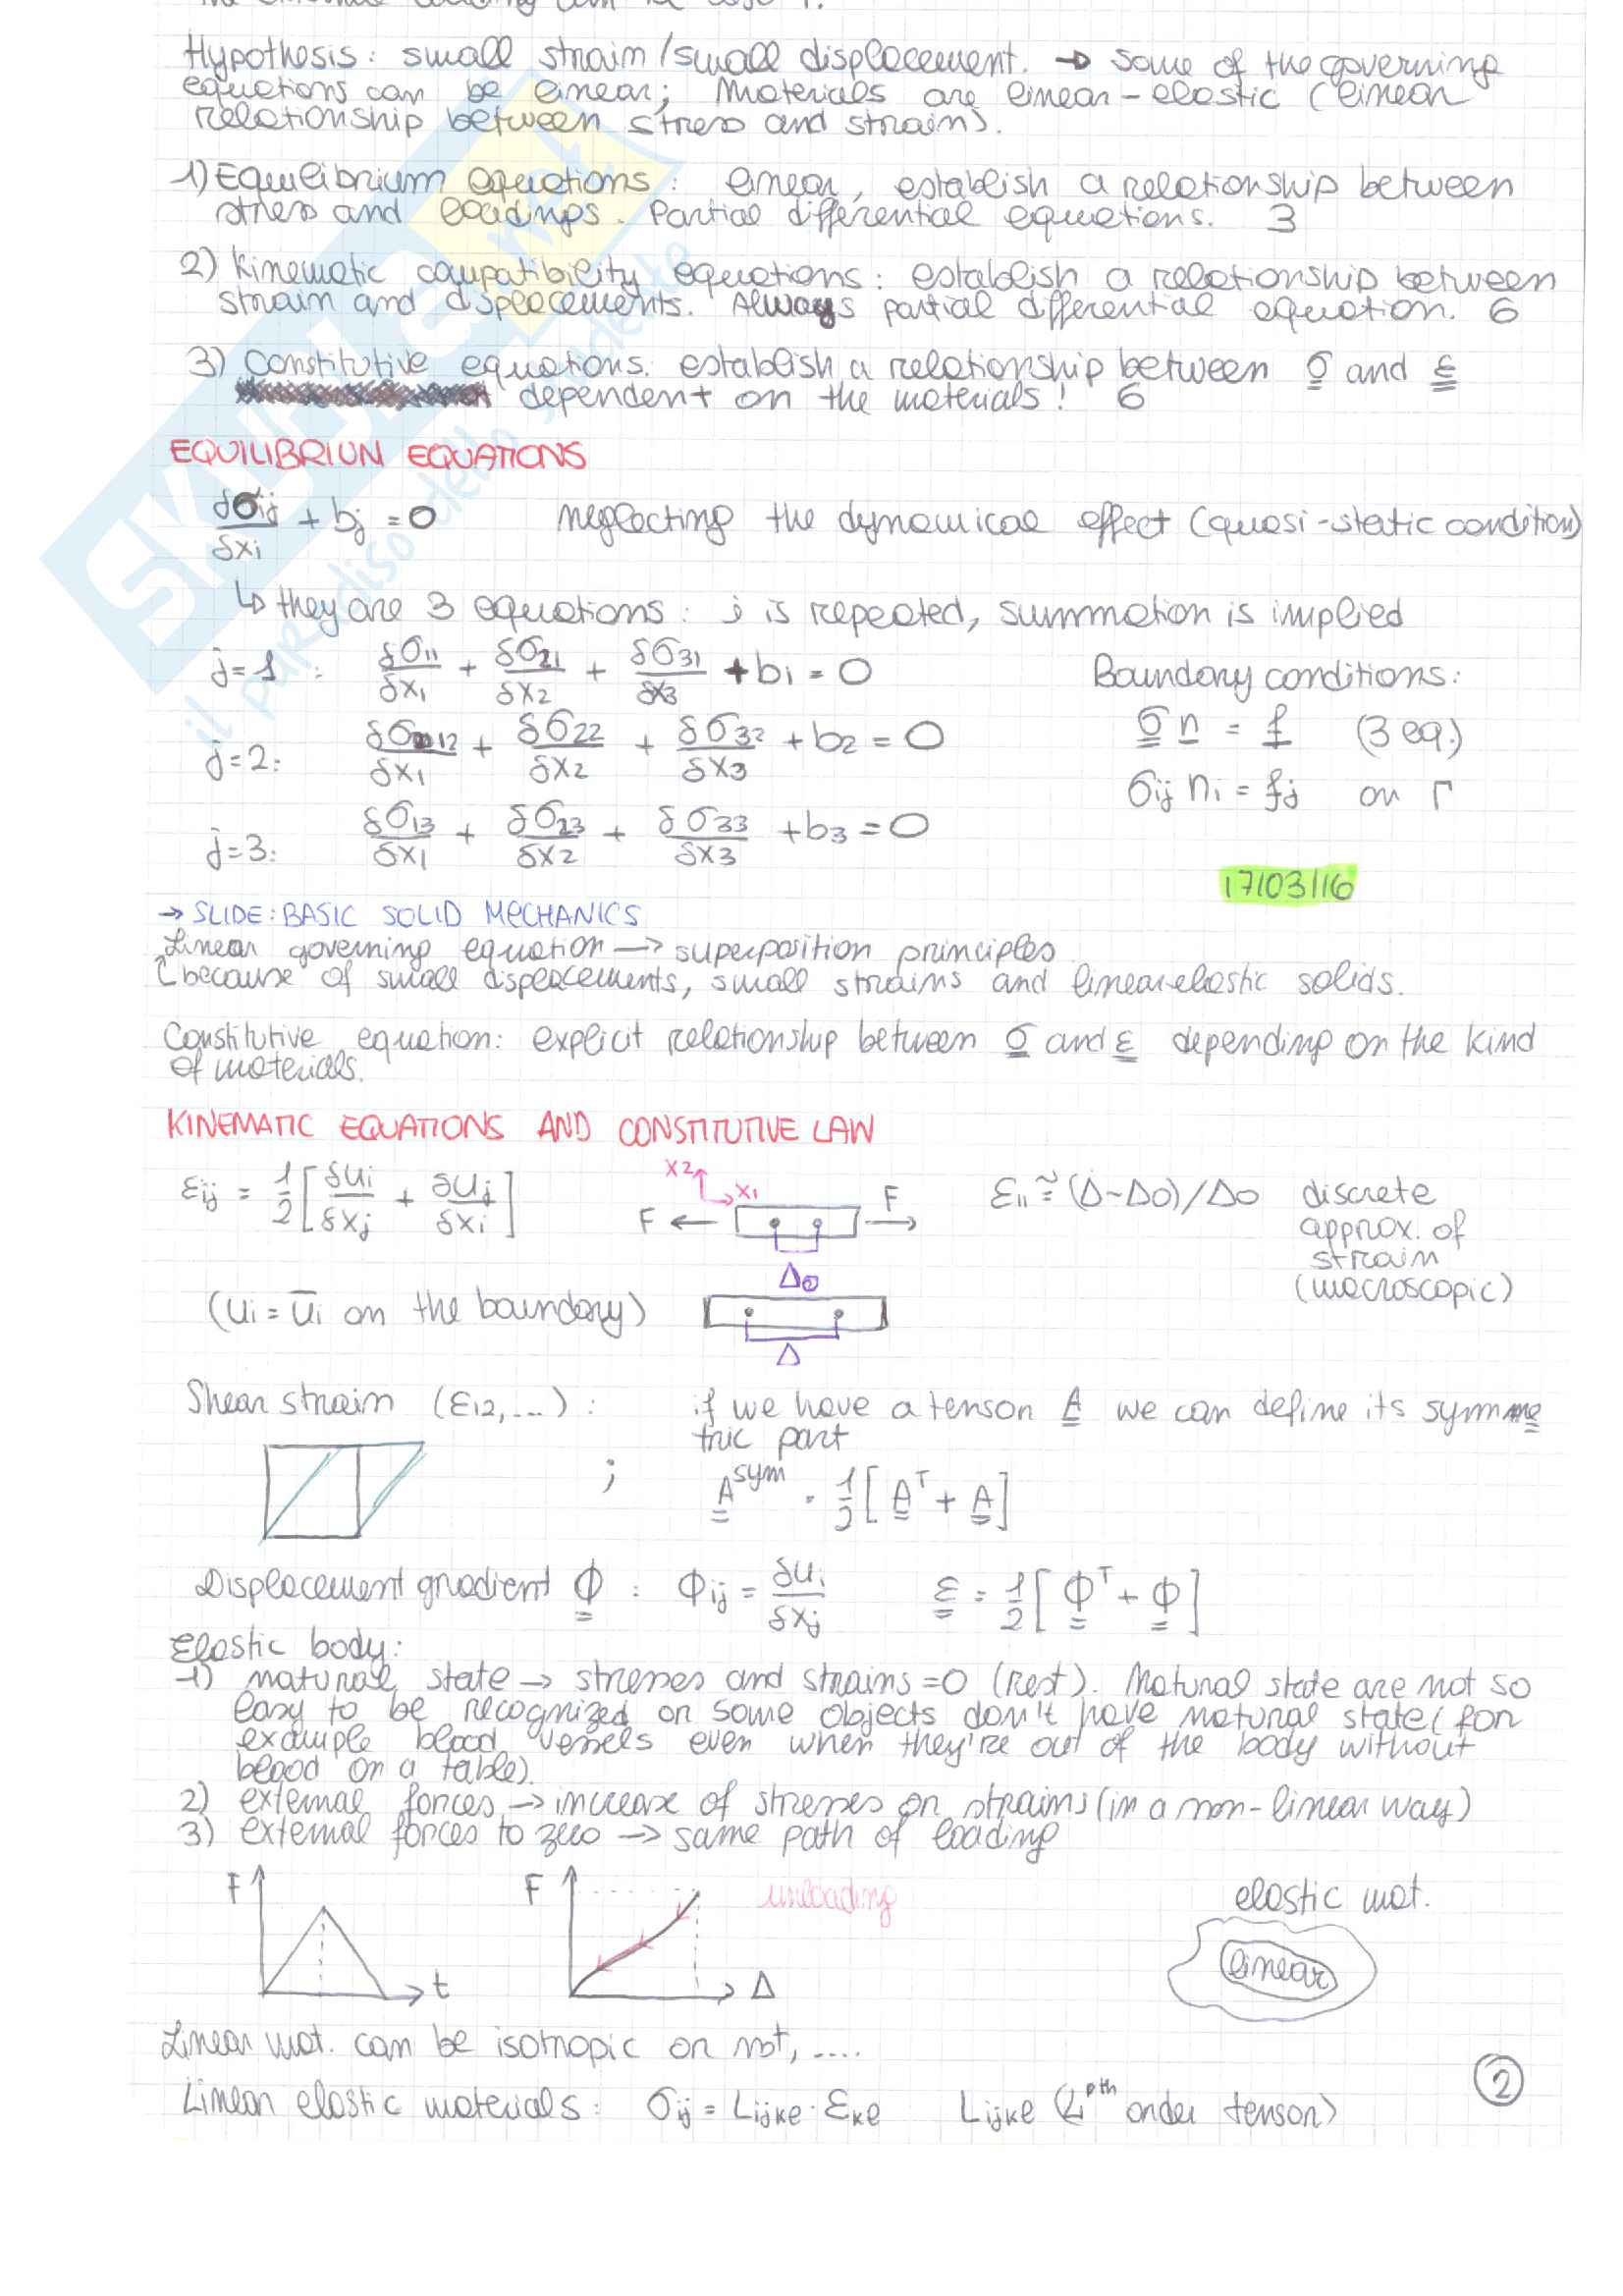 Hypothesis: small strain/small displacement. → some of the governing
equations can be linear; Materials are linear-elastic (linear
relationship between stress and strain).
1) Equilibrium equations: linear, establish a relationship between
stress and loadings. Partial differential equations. 3
2) Kinematic compatibility equations: establish a relationship between
strain and displacements. Always partial differential equation. 6
3) Constitutive equations: establish a relationship between σ and ε
dependent on the materials! 6
EQUILIBRIUM EQUATIONS
δσij/δxi + bj = 0 neglecting the dynamical effect (quasi-static condition)
↳ they are 3 equations: i is repeated, summation is implied
j=1: δσ11/δx1 + δσ21/δx2 + δσ31/δx3 + b1 = 0 Boundary conditions:
j=2: δσ12/δx1 + δσ22/δx2 + δσ32/δx3 + b2 = 0 σ n = f (3 eq.)
σij ni = fj on Γ
j=3: δσ13/δx1 + δσ23/δx2 + δσ33/δx3 + b3 = 0
17/03/16
→ SLIDE: BASIC SOLID MECHANICS
Linear governing equation → superposition principles
because of small displacements, small strains and linear-elastic solids.
Constitutive equation: explicit relationship between σ and ε depending on the kind
of materials.
KINEMATIC EQUATIONS AND CONSTITUTIVE LAW
εij = 1/2 [δui/δxj + δuj/δxi] x2 x1 F F ε11 ≅ (Δ-Δ0)/Δ0 discrete
approx. of
strain
(macroscopic)
Δ0
(ui = ūi on the boundary)
Δ
Shear strain (ε12, ...): if we have a tensor A we can define its symme
tric part
; A^sym = 1/2 [A^T + A]
Displacement gradient Φ : Φij = δui/δxj ε = 1/2 [Φ^T + Φ]
Elastic body:
1) natural state → stresses and strains = 0 (rest). Natural state are not so
easy to be recognized or some objects don't have natural state (for
example blood vessels even when they're out of the body without
blood on a table).
2) external forces → increase of stresses or strains (in a non-linear way)
3) external forces to zero → same path of loading
F t F Δ unloading elastic mat.
linear
Linear mat. can be isotropic or not, ....
Linear elastic materials: σij = Lijkl · εkl Lijkl (4th order tensor)
2
SKUOLA.net
il paradiso dello studente